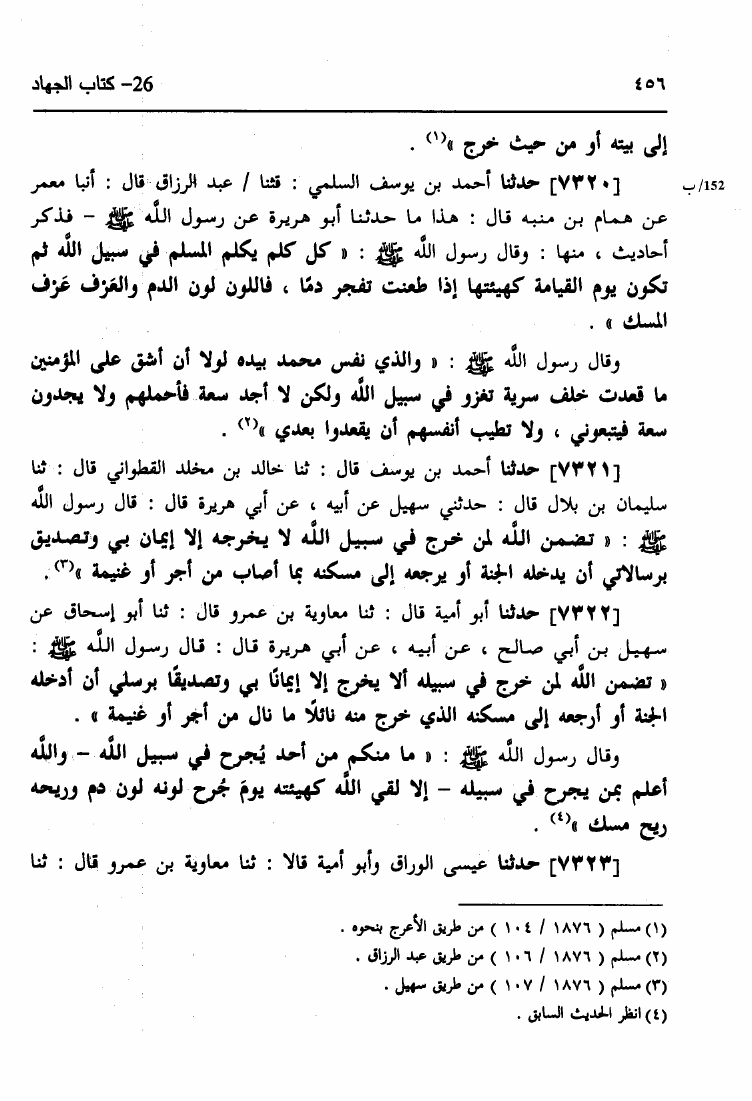 ٤٥٦ 26- كتاب الجهاد
إلى بيته أو من حيث خرج »(١) .
[٧٣٢٠] حدثنا أحمد بن يوسف السلمي : قثنا / عبد الرزاق قال : أنبا معمر 152/ب
عن همام بن منبه قال : هذا ما حدثنا أبو هريرة عن رسول الله ﷺ – فذكر
أحاديث ، منها : وقال رسول الله ﷺ : « كل كلم يكلم المسلم في سبيل الله ثم
تكون يوم القيامة كهيئتها إذا طعنت تفجر دمًا ، فاللون لون الدم والعَرْف عَرْف
المسك » .
وقال رسول الله ﷺ : « والذي نفس محمد بيده لولا أن أشق على المؤمنين
ما قعدت خلف سرية تغزو في سبيل الله ولكن لا أجد سعة فأحملهم ولا يجدون
سعة فيتبعوني ، ولا تطيب أنفسهم أن يقعدوا بعدي »(٢) .
[٧٣٢١] حدثنا أحمد بن يوسف قال : ثنا خالد بن مخلد القطواني قال : ثنا
سليمان بن بلال قال : حدثني سهيل عن أبيه ، عن أبي هريرة قال : قال رسول الله
ﷺ : « تضمن الله لمن خرج في سبيل الله لا يخرجه إلا إيمان بي وتصديق
برسالاتي أن يدخله الجنة أو يرجعه إلى مسكنه بما أصاب من أجر أو غنيمة »(٣).
[٧٣٢٢] حدثنا أبو أمية قال : ثنا معاوية بن عمرو قال : ثنا أبو إسحاق عن
سهيل بن أبي صالح ، عن أبيه ، عن أبي هريرة قال : قال رسول الله ﷺ :
« تضمن الله لمن خرج في سبيله ألا يخرج إلا إيمانًا بي وتصديقًا برسلي أن أدخله
الجنة أو أرجعه إلى مسكنه الذي خرج منه نائلًا ما نال من أجر أو غنيمة » .
وقال رسول الله ﷺ : « ما منكم من أحد يُجرح في سبيل الله – والله
أعلم بمن يجرح في سبيله – إلا لقي الله كهيئته يومَ جُرح لونه لون دم وريحه
ريح مسك »(٤) .
[٧٣٢٣] حدثنا عيسى الوراق وأبو أمية قالا : ثنا معاوية بن عمرو قال : ثنا
(١) مسلم ( ١٨٧٦ / ١٠٤ ) من طريق الأعرج بنحوه .
(٢) مسلم ( ١٨٧٦ / ١٠٦ ) من طريق عبد الرزاق .
(٣) مسلم ( ١٨٧٦ / ١٠٧ ) من طريق سهيل .
(٤) انظر الحديث السابق .